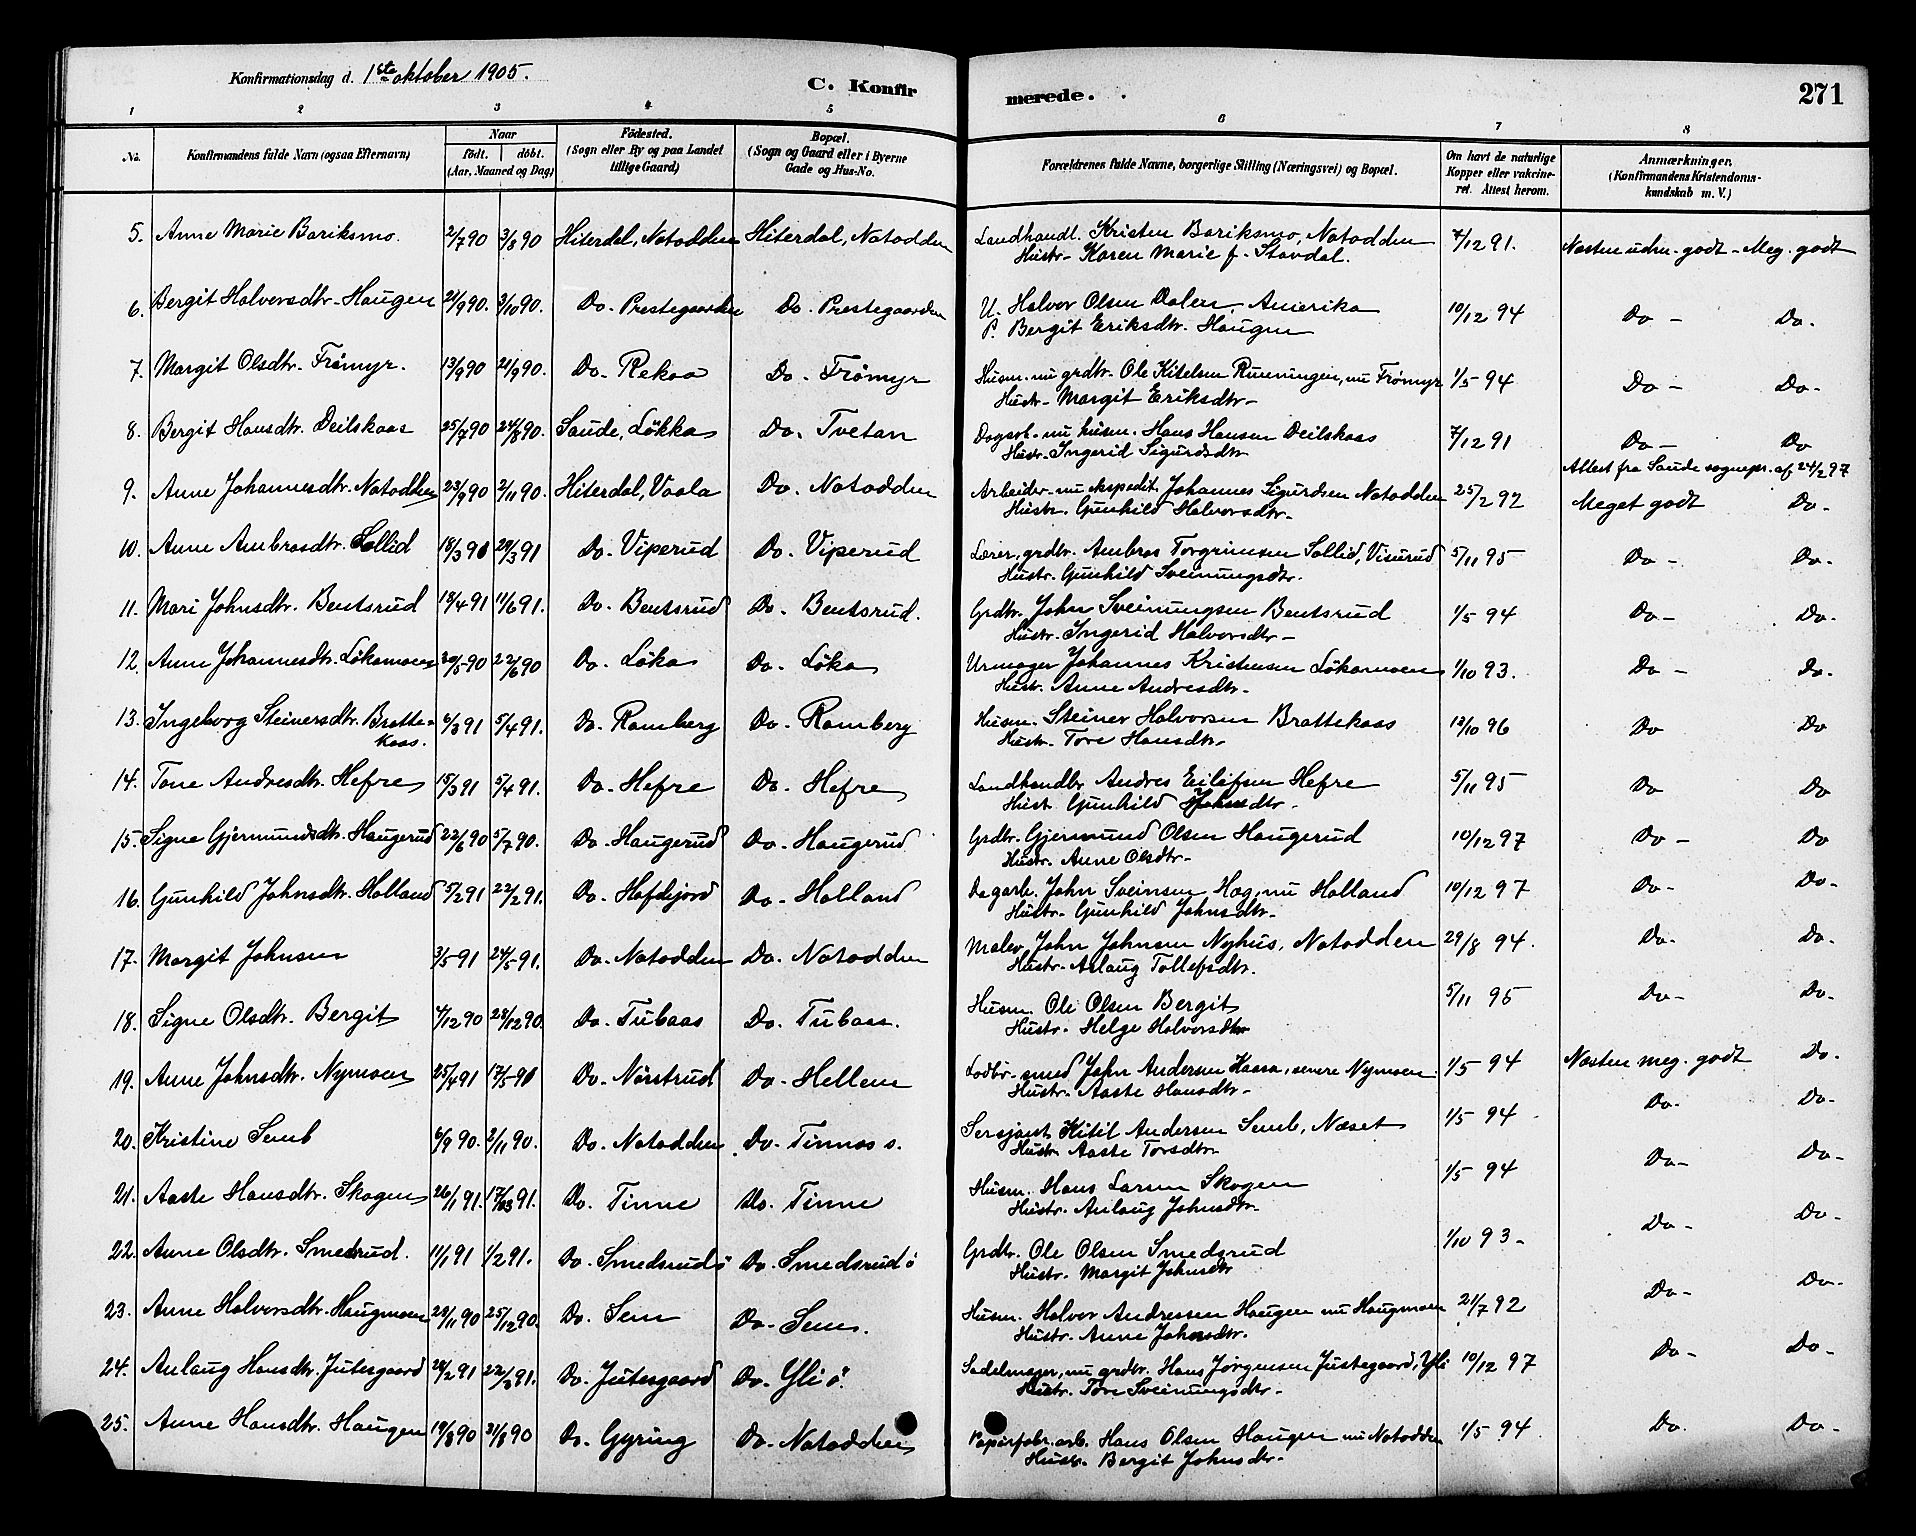 Konfirmationsdag d. 1ste oktober 1905.
C. Konfirmerede.
271
1 2 3 4 5 6 7 8
No.
Konfirmandens fulde Navn (ogsaa Efternavn)
Naar
födt. döbt.
(Aar, Maaned og Dag)
Födested.
(Sogn eller By og paa Landet
tillige Gaard)
Bopæl.
(Sogn og Gaard eller i Byerne
Gade og Hus-No.
Forældrenes fulde Navne, borgerlige Stilling (Næringsvei) og Bopæl.
Om havt de naturlige
Kopper eller vakcine-
ret. Attest herom.
Anmærkninger.
(Konfirmandens Kristendoms-
kundskab m. V.)
5. Anne Marie Bariksmo. 2/7 90 3/8 90 Hiterdal, Notodden Hiterdal, Notodden Landhandl. Kristen Bariksmo, Notodden 7/12 91. Næsten udm. godt - Meg. godt
Hustr- Karen Marie f. Stavdal.
6. Bergit Halvorsdtr. Haugen 21/9 90. 3/10 90. Do. Prestegaarden Do. Prestegaarden U. Halvor Olsen Dalen, Amerika 10/12 94 Do - Do.
P. Bergit Eriksdtr. Haugen
7. Margit Olsdtr. Frömyr. 13/9 90 21/9 90. Do. Rekaa Do. Frömyr Husm. nu grdbr. Ole Kitelsen Rueningen, nu Frömyr 1/5 94 Do - Do-
Hustr- Margit Eriksdtr-
8. Bergit Hansdtr. Deilskaas 25/7 90 24/8 90. Saude, Lökka Do. Tvetan Dagarb. nu husm. Hans Hansen Deilskaas 7/12 91 Do - Do
Hustr. Ingerid Sigurdsdtr
Attest fra Saude sognepr. af 24/2 97
9. Anne Johannesdtr. Notodden 23/9 90 2/11 90. Hiterdal, Vaala Do. Notodden Arbeider- nu ekspedit. Johannes Sigurdsen Notodden 25/2 92 Meget godt Do-
Hustr. Gunhild Halvorsdtr-
10. Anne Ambrosdtr. Sollid 18/3 91 29/3 91 Do. Viperud Do. Viperud Lærer, grdbr. Ambros Torgrimsen Sollid, Visurud 5/11 95 Do - Do.
Hustr. Gunhild Sveinungsdtr.
11. Mari Johnsdtr. Bentsrud 13/4 91 11/6 91. Do. Bentsrud Do. Bentsrud. Grdbr. John Sveinungsen Bentsrud 1/5 94 Do - Do.
Hustr. Ingerid Halvorsdtr-
12. Anne Johannesdtr. Lökamoen 30/5 90 22/6 90 Do. Löka Do. Löka Urmager Johannes Kristensen Lökamoen 1/10 93. Do - Do.
Hustr. Anne Andresdtr-
13. Ingeborg Steinersdtr. Bratte- 6/3 91 5/4 91. Do. Ramberg Do. Ramberg Husm. Steiner Halvorsen Brattekaas 12/10 96 Do Do
kaas. Hustr- Tore Hansdtr-
14. Tone Andresdtr. Hefre 15/3 91 5/4 91. Do. Hefre Do. Hefre Landhandler Andres Eilifsen Hefre 5/11 95 Do Do
Hustr Gunhild Johnsdtr.
15. Signe Gjermundsdtr. Haugerud 22/6 90 5/7 90. Do. Haugerud Do. Haugerud Grdbr. Gjermund Olsen Haugerud 10/12 97 Do - Do
Hustr. Anne Olsdtr-
16. Gunhild Johnsdtr. Holland 5/2 91 22/2 91. Do. Hafdejord Do. Holland Dagarb. John Sveinsen Hag, nu Holland 10/12 97 Do - Do-
Hustr- Gunhild Johnsdtr-
17. Margit Johnsen 3/5 91 24/5 91. Do. Notodden Do. Notodden Maler John Johnsen Nyhus, Notodden 29/8 94. Do. Do-
Hustr- Aslaug Tollefsdtr.
18. Signe Olsdtr. Bergit 4/12 90 28/12 90. Do. Tubaas Do. Tubaas. Husm. Ole Olsen Bergit 5/11 95 Do - Do-
Hustr- Helge Halvorsdtr
19. Anne Johnsdtr. Nymoen 25/4 91 17/5 91 Do. Nörstrud Do. Hellem Lodbr. smed John Andersen Kaasa, senere Nymoen 1/5 94 Næsten meg. godt Do-
Hustr- Aaste Hansdtr-
20. Kristine Semb 6/9 90. 2/11 90. Do. Notodden Do. Tinnæs s. Sersjant Kitil Andersen Semb, Næset 1/5 94 Do. Do-
Hustr Aaste Torsdtr
21. Aaste Hansdtr. Skogen 26/1 91. 17/03 91. Do. Tinne Do. Tinne Husm. Hans Larsen Skogen 1/5 94 Do - Do-
Hustr- Anlaug Johnsdtr-
22. Anne Olsdtr. Smedsrud. 11/1 91 1/2 91. Do. Smedsrud ö Do. Smedsrud ö Grdbr. Ole Olsen Smedsrud 1/10 93- Do - Do-
Hustr. Margit Johnsdtr
23. Anne Halvorsdtr. Haugmoen 28/11 90 25/12 90. Do. Sem Do. Sem. Husm. Halvor Andressen Haugen nu Haugmoen 21/7 92 Do - Do-
Hustr. Anne Johnsdtr.
24. Anlaug Hansdtr. Jutesgaard 28/2 91 22/3 91. Do. Jutesgaard Do. Yli ö. Sadelmager, nu grdbr. Hans Jörgensen Justegaard, Yli 10/12 97 Do - Do-
Hustr. Tore Sveinungsdtr-
25. Anne Hansdtr. Haugen 19/8 90 31/8 90 Do. Gyring Do. Notodden Papirfabr. arb. Hans Olsen Haugen nu Notodden 1/5 94 Do. Do-
Hustr. Bergit Johnsdtr-